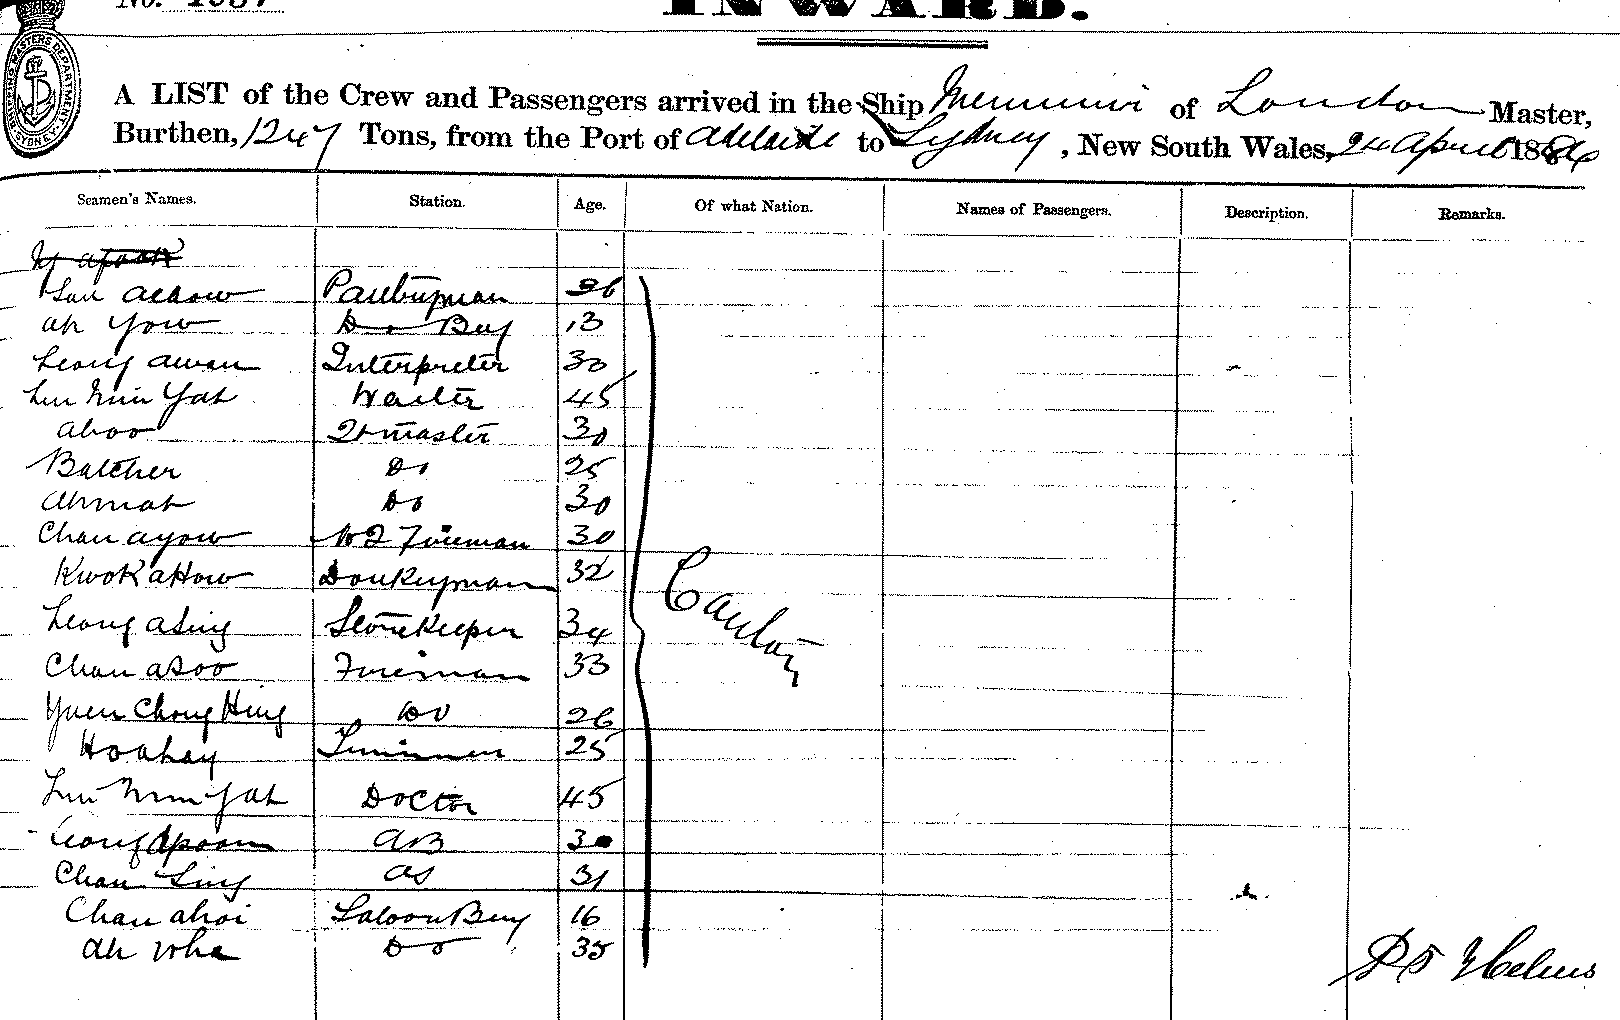 No. 1587
INWARD.
A LIST of the Crew and Passengers arrived in the Ship Menmuir of London Master,
Burthen, 1247 Tons, from the Port of Adelaide to Sydney, New South Wales, 24 April 1886
Seamen's Names. Station. Age. Of what Nation. Names of Passengers. Description. Remarks.
Pantryman 36
Ah Yow Do Boy 13
Leong Awan Interpreter 30
Lu Min Yat Waiter 45
Ahoo Qr master 30
Batcher Do 25
Ahmat Do 30
Chan ayow No 2 Fireman 30
Kwok aHow Donkeyman 32
Canton
Leong aSing Storekeeper 34
Chan aSoo Fireman 33
Yuen Chong Hing Do 26
Hoahay Trimmer 25
Yat Doctor 45
Leong Apoon AB 30
Chan Sing OS 31
Chan ahoi Saloon Boy 16
Ah Whe Do 35